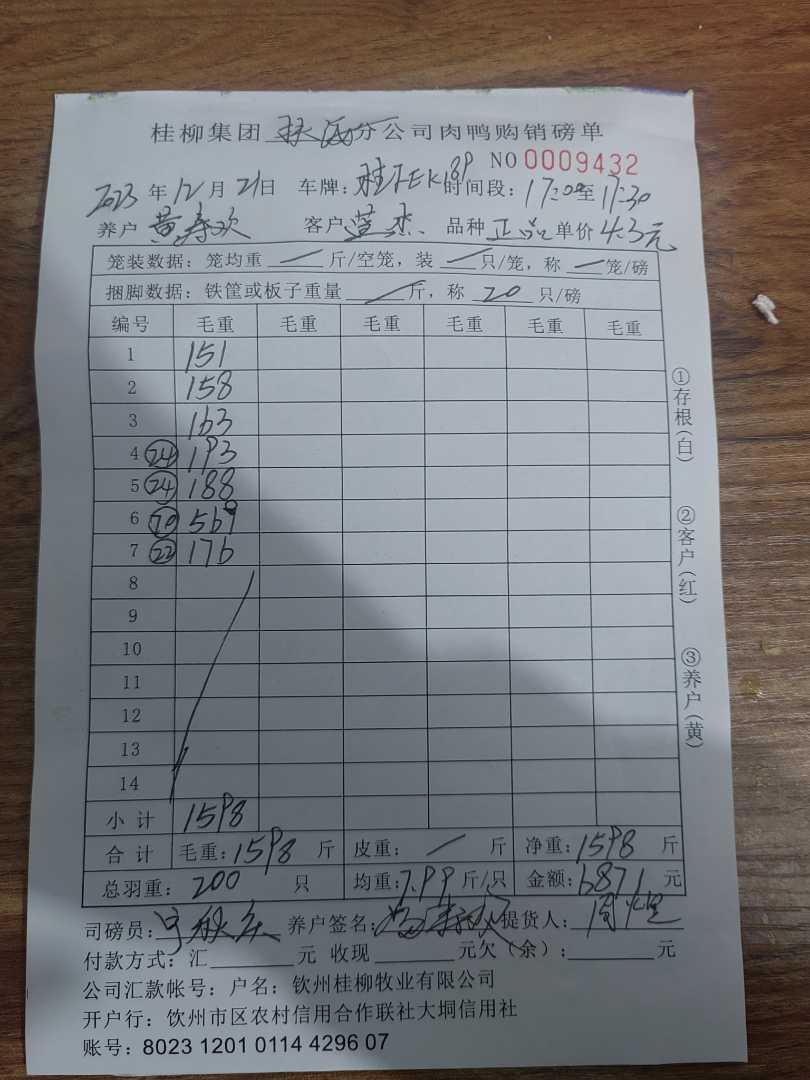 桂柳集团 分公司肉鸭购销磅单
NO 0009432
2023年12月21日 车牌：桂 时间段：17:00至17:30
养户 黄寿欢 客户 蓝杰 品种 正品 单价 4.3元
笼装数据：笼均重 / 斤/空笼，装 / 只/笼，称 / 笼/磅
捆脚数据：铁筐或板子重量 / 斤，称 20 只/磅
编号 毛重 毛重 毛重 毛重 毛重 毛重
1 151
2 158
3 163
4 (24) 193
5 (24) 188
6 (70) 569
7 (22) 176
8
9
10
11
12
13
14
小计 1598
合计 毛重：1598 斤 皮重： / 斤 净重：1598 斤
总羽重： 200 只 均重：7.99 斤/只 金额：6871 元
司磅员： 养户签名： 提货人：
付款方式：汇 元 收现 元欠（余）： 元
公司汇款帐号：户名：钦州桂柳牧业有限公司
开户行：饮州市区农村信用合作联社大垌信用社
账号：8023 1201 0114 4296 07
①存根(白)
②客户(红)
③养户(黄)